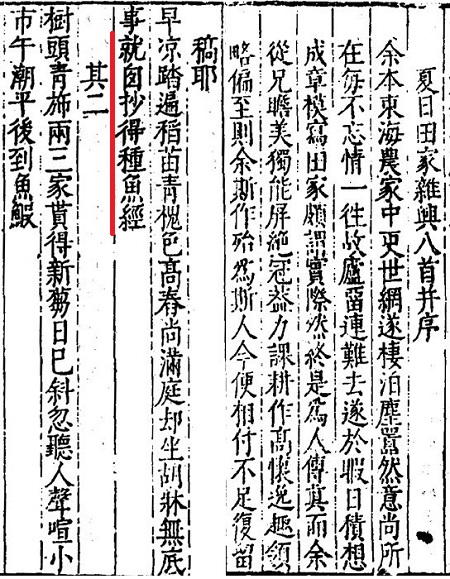 夏日田家雜興八首并序
余本東海農家中更世網遂棲泊塵囂然意尚所
在每不忘情一徃故廬留連難去遂於暇日積想
成章模寫田家頗謂實際然終是為人傳真而余
從兄瞻美獨能屏絕冠蓋力課耕作高懷逸趣領
略偏至則余斯作殆為斯人今便相付不足復留
稿耶
早凉踏遍稻苗青槐色高舂尚滿庭却坐胡牀無底
事就囱抄得種魚經
其二
樹頭青斾兩三家貰得新蒭日已斜忽聽人聲喧小
市午潮平後到魚鰕